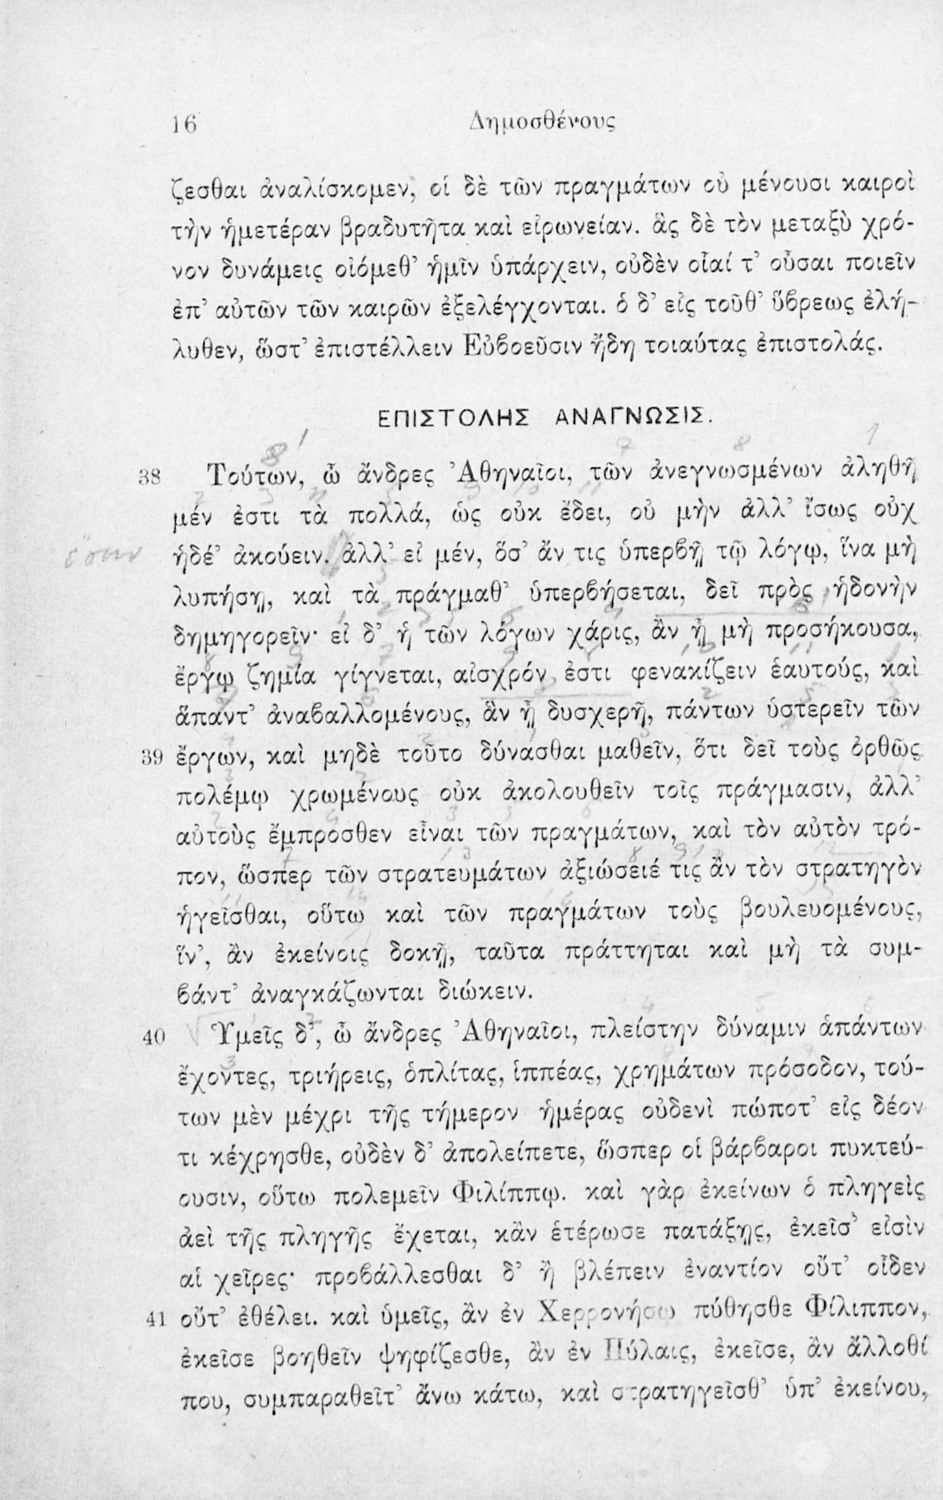 16 Δημοσθένους
ζεσθαι ἀναλίσκομεν, οἱ δὲ τῶν πραγμάτων οὐ μένουσι καιροὶ
τὴν ἡμετέραν βραδυτῆτα καὶ εἰρωνείαν. ἃς δὲ τὸν μεταξὺ χρό-
νον δυνάμεις οἰόμεθ’ ἡμῖν ὑπάρχειν, οὐδὲν οἷαί τ’ οὖσαι ποιεῖν
ἐπ’ αὐτῶν τῶν καιρῶν ἐξελέγχονται. ὁ δ’ εἰς τοῦθ’ ὕβρεως ἐλή-
λυθεν, ὥστ’ ἐπιστέλλειν Εὐβοεῦσιν ἤδη τοιαύτας ἐπιστολάς.
ΕΠΙΣΤΟΛΗΣ ΑΝΑΓΝΩΣΙΣ.
38 Τούτων, ὦ ἄνδρες Ἀθηναῖοι, τῶν ἀνεγνωσμένων ἀληθῆ
μέν ἐστι τὰ πολλά, ὡς οὐκ ἔδει, οὐ μὴν ἀλλ’ ἴσως οὐχ
ἡδέ’ ἀκούειν. ἀλλ’ εἰ μέν, ὅσ’ ἄν τις ὑπερβῇ τῷ λόγῳ, ἵνα μὴ
λυπήσῃ, καὶ τὰ πράγμαθ’ ὑπερβήσεται, δεῖ πρὸς ἡδονὴν
δημηγορεῖν· εἰ δ’ ἡ τῶν λόγων χάρις, ἂν ᾖ μὴ προσήκουσα,
ἔργῳ ζημία γίγνεται, αἰσχρόν ἐστι φενακίζειν ἑαυτούς, καὶ
ἅπαντ’ ἀναβαλλομένους, ἂν ᾖ δυσχερῆ, πάντων ὑστερεῖν τῶν
39 ἔργων, καὶ μηδὲ τοῦτο δύνασθαι μαθεῖν, ὅτι δεῖ τοὺς ὀρθῶς
πολέμῳ χρωμένους οὐκ ἀκολουθεῖν τοῖς πράγμασιν, ἀλλ’
αὐτοὺς ἔμπροσθεν εἶναι τῶν πραγμάτων, καὶ τὸν αὐτὸν τρό-
πον, ὥσπερ τῶν στρατευμάτων ἀξιώσειέ τις ἂν τὸν στρατηγὸν
ἡγεῖσθαι, οὕτω καὶ τῶν πραγμάτων τοὺς βουλευομένους,
ἵν’, ἂν ἐκείνοις δοκῇ, ταῦτα πράττηται καὶ μὴ τὰ συμ-
βάντ’ ἀναγκάζωνται διώκειν.
40 Ὑμεῖς δ’, ὦ ἄνδρες Ἀθηναῖοι, πλείστην δύναμιν ἁπάντων
ἔχοντες, τριήρεις, ὁπλίτας, ἱππέας, χρημάτων πρόσοδον, τού-
των μὲν μέχρι τῆς τήμερον ἡμέρας οὐδενὶ πώποτ’ εἰς δέον
τι κέχρησθε, οὐδὲν δ’ ἀπολείπετε, ὥσπερ οἱ βάρβαροι πυκτεύ-
ουσιν, οὕτω πολεμεῖν Φιλίππῳ. καὶ γὰρ ἐκείνων ὁ πληγεὶς
ἀεὶ τῆς πληγῆς ἔχεται, κἂν ἑτέρωσε πατάξῃς, ἐκεῖσ’ εἰσὶν
αἱ χεῖρες· προβάλλεσθαι δ’ ἢ βλέπειν ἐναντίον οὔτ’ οἶδεν
41 οὔτ’ ἐθέλει. καὶ ὑμεῖς, ἂν ἐν Χερρονήσῳ πύθησθε Φίλιππον,
ἐκεῖσε βοηθεῖν ψηφίζεσθε, ἂν ἐν Πύλαις, ἐκεῖσε, ἂν ἄλλοθί
που, συμπαραθεῖτ’ ἄνω κάτω, καὶ στρατηγεῖσθ’ ὑπ’ ἐκείνου,